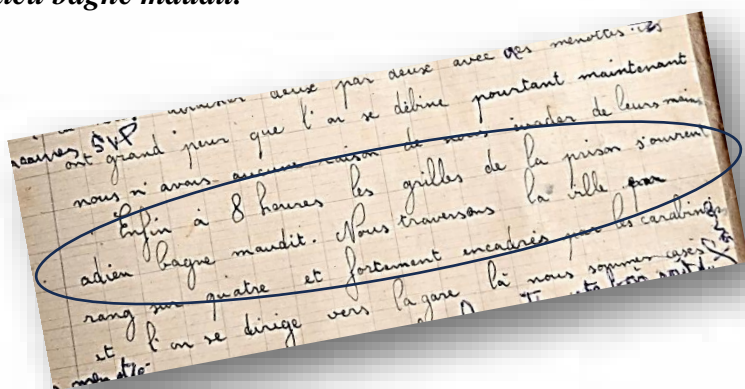 bagne maudit.
attacher deux par deux avec des menottes. Ils
ont grand peur que l'on se débine pourtant maintenant
nous n'avons aucune raison de nous évader de leurs mains
Enfin à 8 heures les grilles de la prison s'ouvrent
adieu bagne maudit. Nous traversons la ville par
rang sur quatre et fortement encadrés par les carabiniers
et l'on se dirige vers la gare là nous sommes casés
SVP